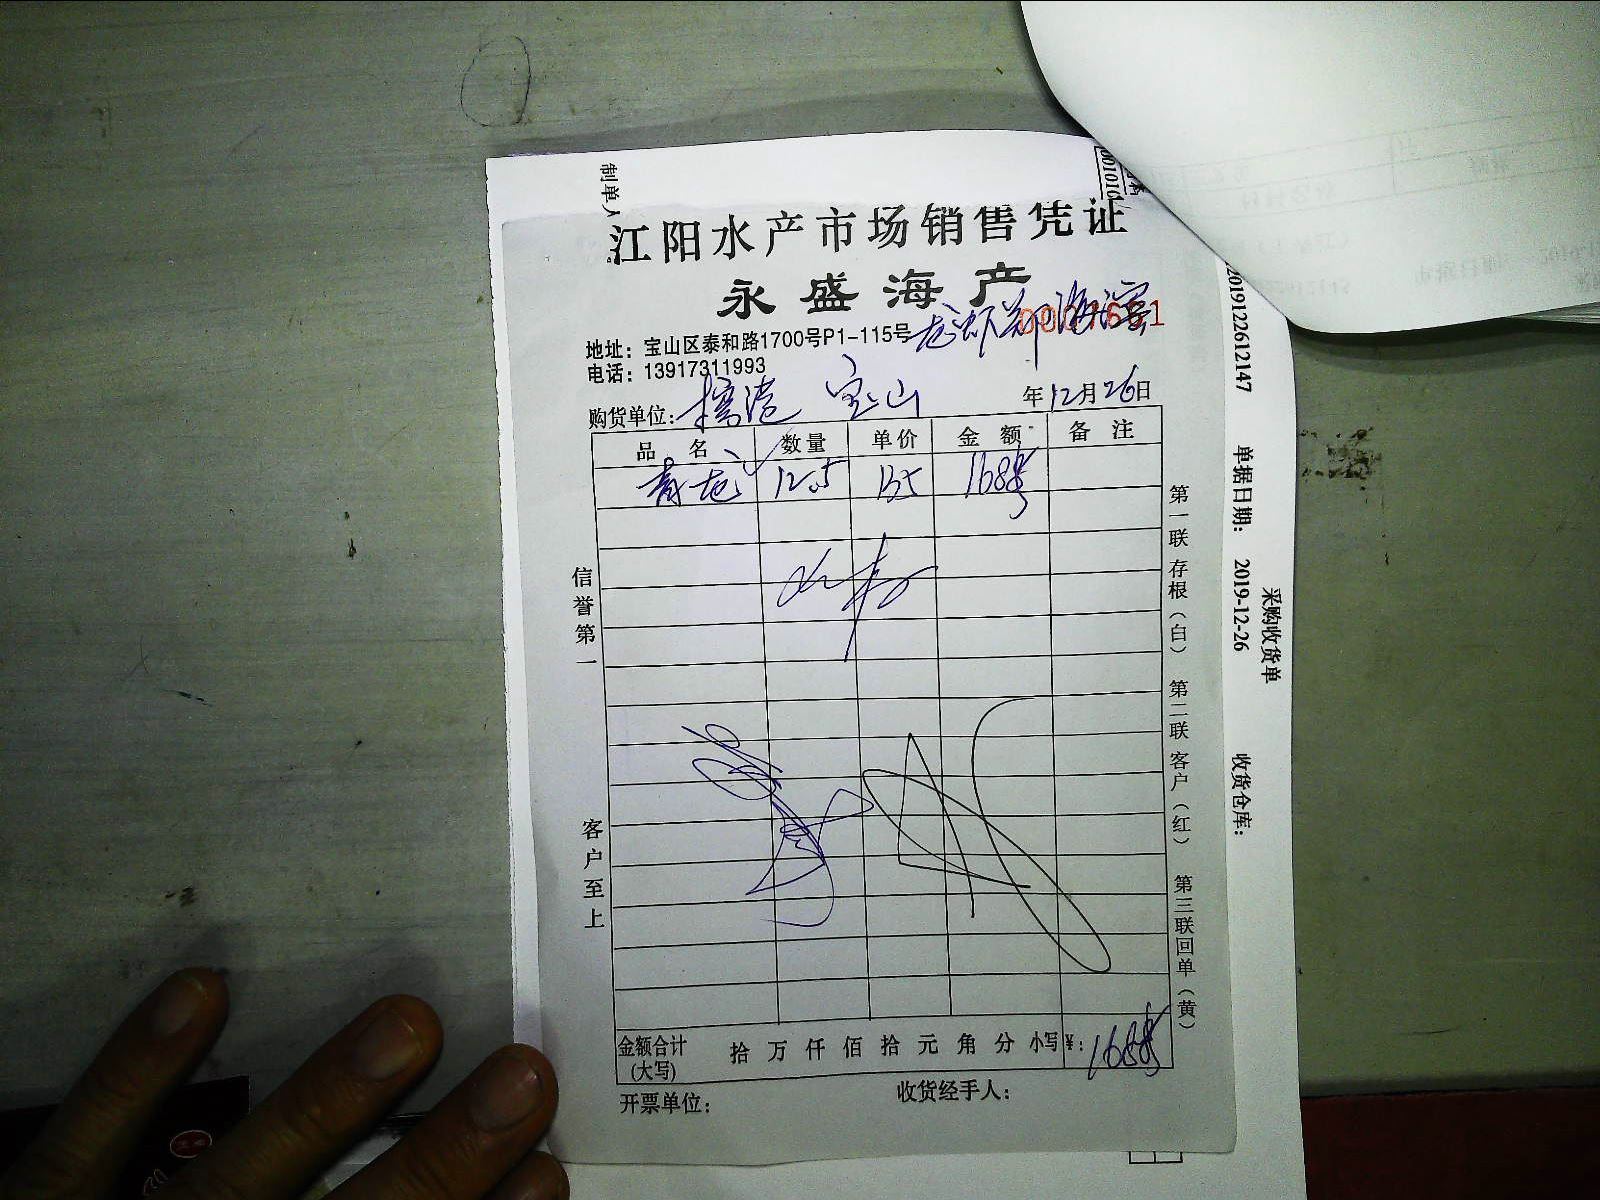 制单人
江阳水产市场销售凭证
永盛海产
地址：宝山区泰和路1700号P1-115号
电话：13917311993
购货单位： 宝山 年12月26日
品 名 数量 单价 金 额 备 注
青龙 12.5 135 1688
信誉第一
客户至上
第一联 存根（白） 第二联 客户（红） 第三联 回单（黄）
金额合计(大写) 拾 万 仟 佰 拾 元 角 分 小写¥： 1688
开票单位： 收货经手人：
2019122612147
单据日期： 2019-12-26 收货仓库：
采购收货单